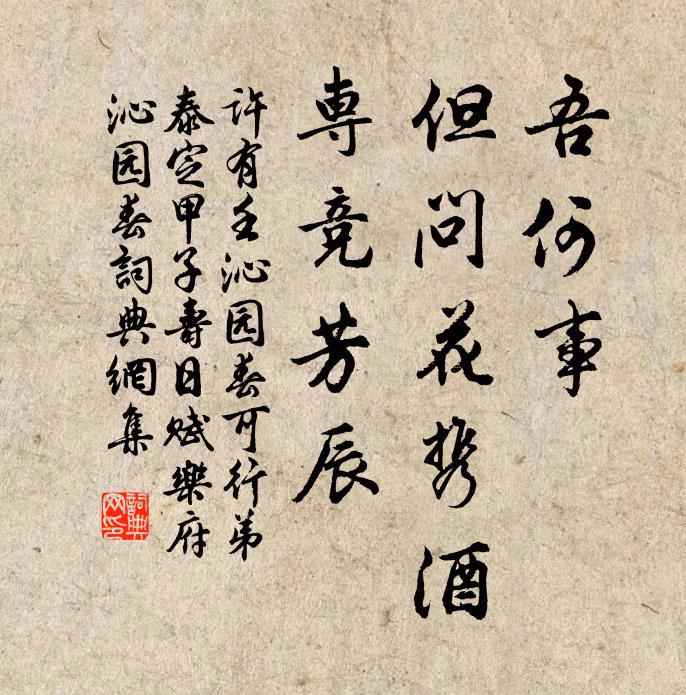 吾何事
但问花携酒
専竞芳辰
许有壬沁园春可行弟
泰定甲子寿日赋樂府
沁园春詞典網集
詞典网印